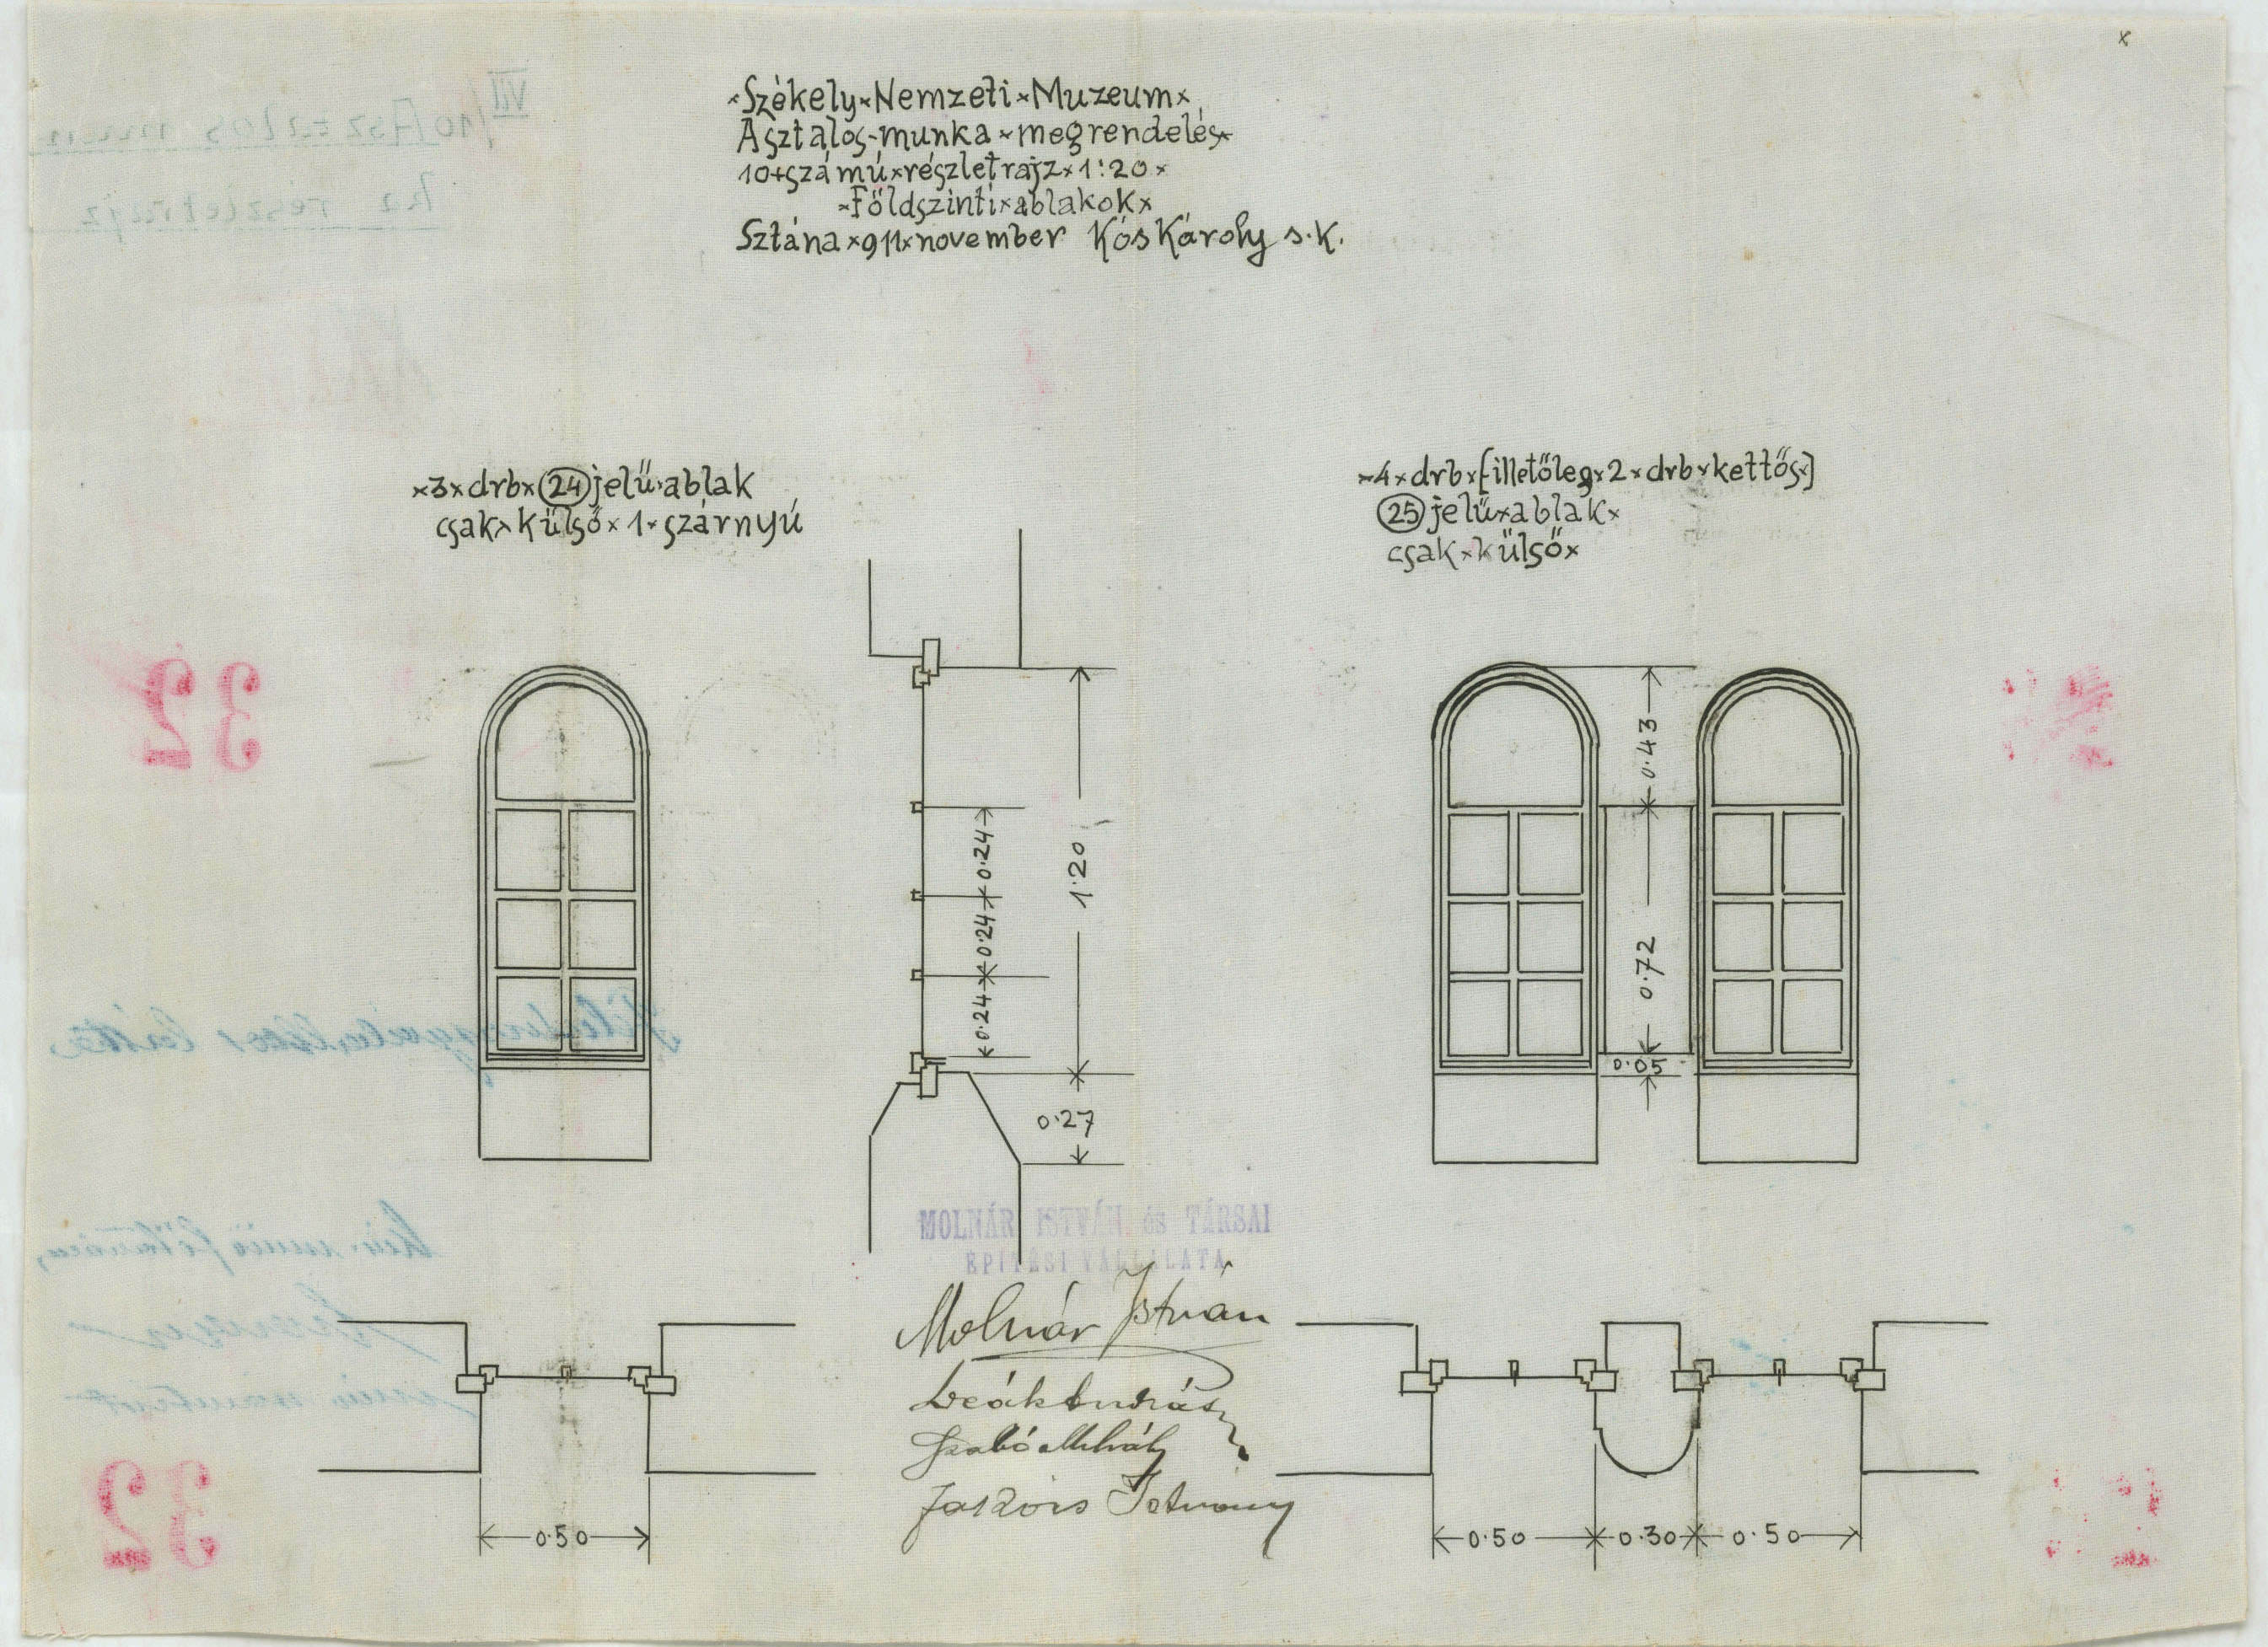 ×Székely×Nemzeti×Muzeum×
Asztalos-munka×megrendelés×
10×számú×részletrajz×1:20×
×Földszinti×ablakok×
Sztána×911×november Kós Károly s.k.
×3×drb×24 jelű×ablak
csak×külső×1×szárnyú
×4×drb×[illetőleg×2×drb×kettős×]
25 jelű×ablak×
csak×külső×
0.24
0.24
0.24
1.20
0.27
0.43
0.72
0.05
MOLNÁR ISTVÁN és TÁRSAI
ÉPITÉSI VÁLLALATA
Molnár István
Deák András
Szabó Mihály
0.50
0.50
0.30
0.50
VII
10 Asztalos mun
ka részletrajz
32
32